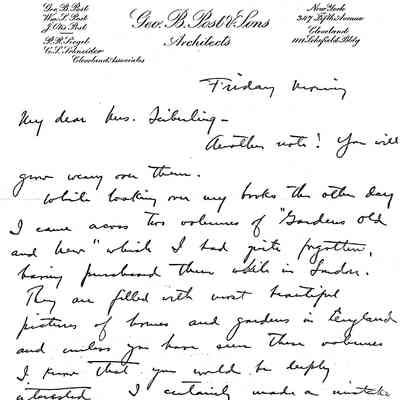 Geo. B. Post
Wm. S. Post
J. Otis Post
R. R. Seigel
G. L. Schneider
Cleveland Associates
Geo. B. Post & Sons
Architects
New York
347 Fifth Avenue
Cleveland
1111 Schofield Bldg
Friday Morning
My dear Mrs. Seiberling -
Another note! You will
grow weary over them.
While looking over my books the other day
I came across two volumes of "Gardens old
and New" which I had quite forgotten,
having purchased them while in London.
They are filled with most beautiful
pictures of homes and gardens in England
and unless you have seen these volumes
I know that you would be deeply
interested I certainly made a mistake